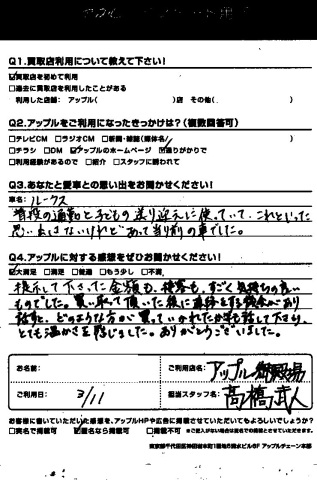 Q1.買取店利用について教えて下さい!
☑買取店を初めて利用
□過去に買取店を利用したことがある
利用した店舗: アップル( )店 その他( )
Q2.アップルをご利用になったきっかけは?(複数回答可)
□テレビCM □ラジオCM □新聞・雑誌(媒体名/ )
□チラシ □DM ☑アップルのホームページ ☑通りがかりで
□利用経験があるので □紹介 □スタッフに誘われて
Q3.あなたと愛車との思い出をお聞かせください!
車名: ルークス
普段の通勤と子どもの送り迎えに使っていて、これといった
思い出はないけれど、あって当り前の車でした。
Q4.アップルに対する感想をぜひお聞かせください!
☑大満足 □満足 □普通 □もう少し □不満
提示して下さった金額も、接客も、すごく気持ちの良い
ものでした。買い取って頂いた後に
どのような方が買っていかれたか等も話して下さり、
とても温かさを感じました。ありがとうございました。
お名前:
ご利用店名: アップル御殿場
ご利用日: 3/11
担当スタッフ名: 高橋武人
お客様に書いていただいた感想を、アップルHPや広告に掲載させていただいてもよろしいでしょうか?
□実名で掲載可 ☑匿名なら掲載可 □掲載不可 ※ご記入がない場合は匿名での掲載とさせていただきます。
東京都千代田区神田岩本町1番地5清水ビル6F アップルチェーン本部